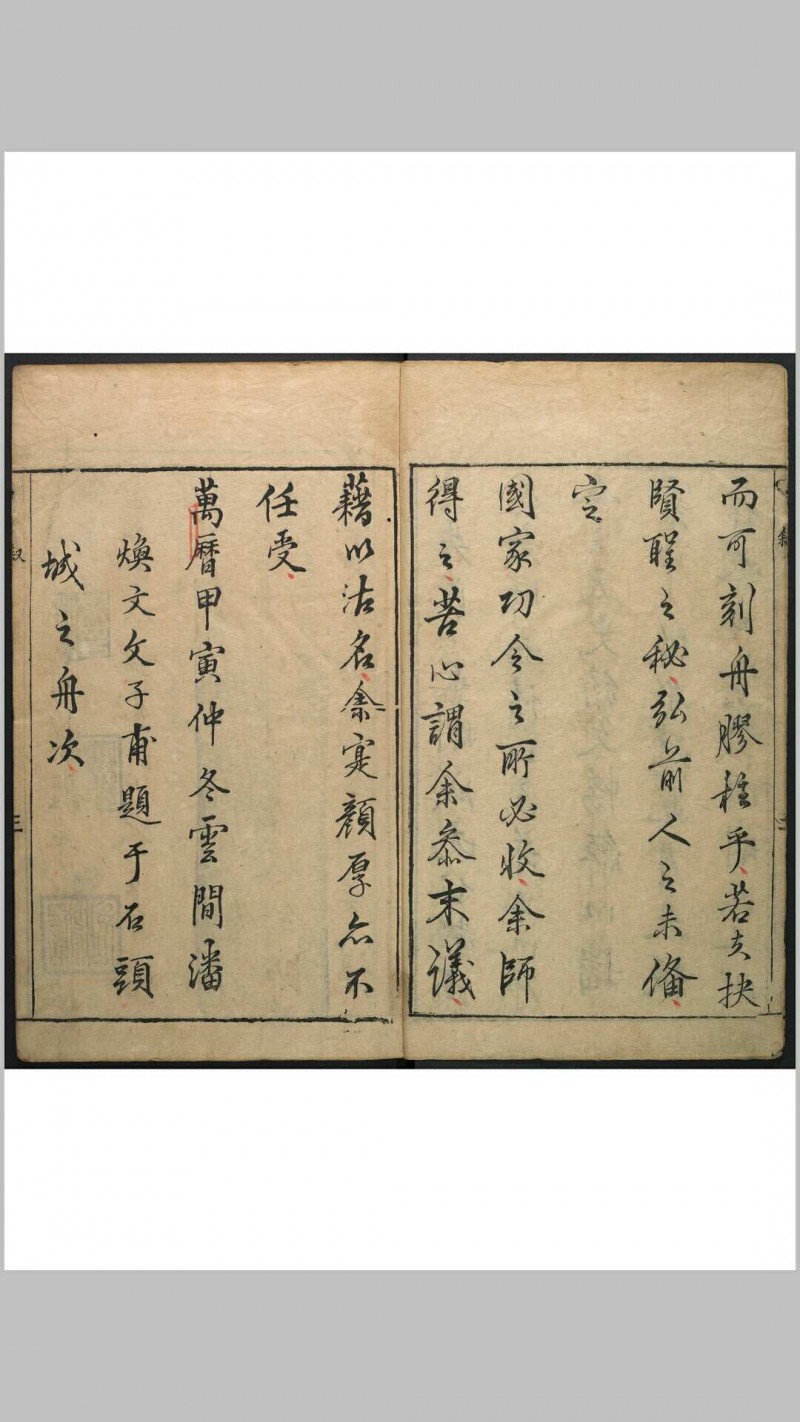 而可刻舟膠柱乎若夫抉
賢聖之秘弘前人之未備
定
國家功令之所必收余師
得之苦心謂余忝末議
藉以沽名余寔顏厚亦不
任受
萬曆甲寅仲冬雲間潘
煥文文子甫題于石頭
城之舟次